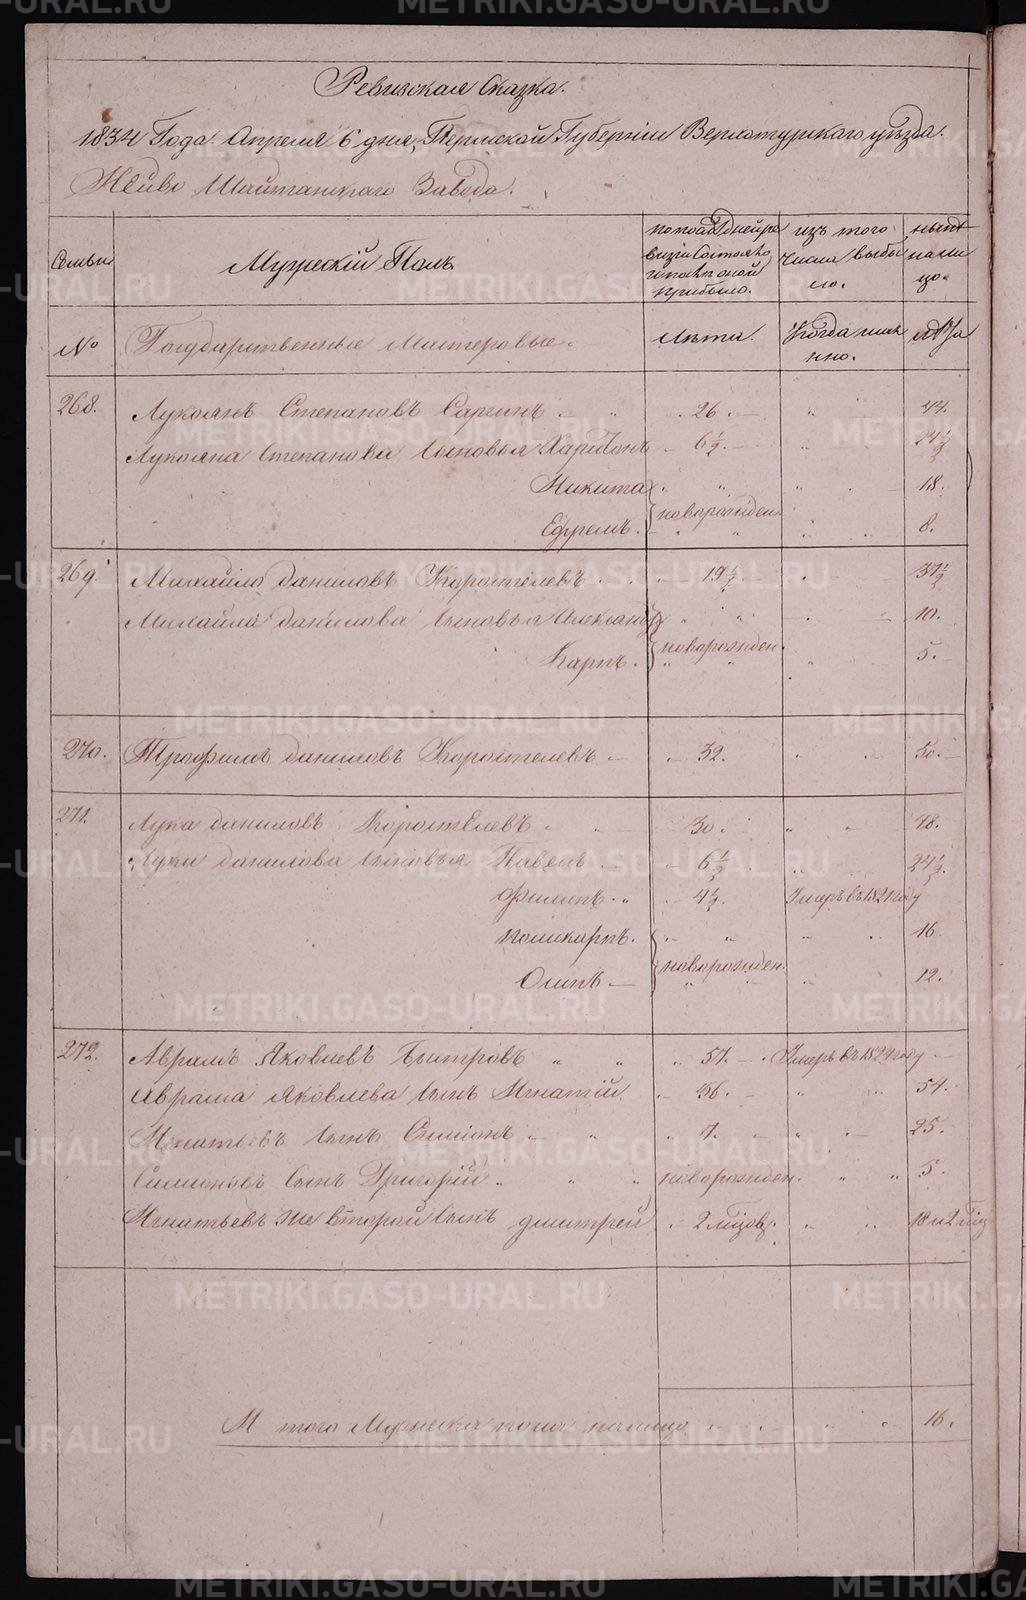 Ревизская Сказка.
1834 Года Апреля 6 дня, Пермской Губернiи Верхотурскаго уѣзда.
Нейво Шайтанскаго Завода.
Семьи
Мужескiй Полъ
по последней ре
визiи Состояло
и послѣ оной
прибыло.
изъ того
числа выбы
ло.
нынѣ
на ли
цо.
№
Государственные Мастеровые.
Лѣта.
Когда имян
нно.
лѣта
268. Лукоянъ Степановъ Саргинъ 26. 44.
Лукояна Степанова Сыновья Харитонъ 6½. 24½
Никита 18.
новорожден.
Ефремъ. 8.
269. Михайло Даниловъ Коростелевъ 19½. 37½
Михайла Данилова Сыновья Александръ 10.
новорожден.
Карпъ. 5.
270. Трофимъ Даниловъ Коростелевъ 32. 50.
271. Лука Даниловъ Коростелевъ 30. 48.
Луки Данилова Сыновья Павелъ 6½ 24½.
Филипъ 4½. Умеръ въ 1821 году
Поликарпъ. 16.
новорожден.
Осипъ 12.
272. Аврамъ Яковлевъ Быстровъ 57. Умеръ въ 1824 году
Аврама Яковлева Сынъ Игнатiй 36. 54.
Игнатьевъ Сынъ Симiонъ 7. 25.
Симионовъ Сынъ Григорiй новорожден. 5.
Игнатьевъ же второй Сынъ Дмитрей 2 мѣсяц. 18 и 2 мѣс
И того Мужеска пола налицо 16.
METRIKI.GASO-URAL.RU